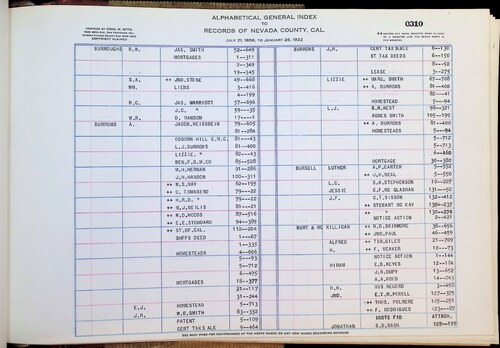 ALPHABETICAL GENERAL INDEX
TO
RECORDS OF NEVADA COUNTY, CAL.
JULY 21, 1856, TO JANUARY 26, 1922
0310
BURROUGHS R.W. JAS. SMITH 52--649
MORTGAGES 1--311
2--349
19--345
S.A. ++ JNO.STONE 49--668
WM. LIENS 3--416
4--199
R.G. JAS. MARRIOTT 57--695
J.C. " 59--35
W.R. D. RANSOM 17---1
BURROWS A. JACOB.WEISSBEIN 79--605
81--284
OSBORN HILL G.M.C. 81--43
L.J.BURROWS 81--400
LIZZIE. " 82--43
BEN.F.G.M.CO 85--528
W.H.HERNAN 91--286
J.H.HANSON 100--311
++ W.S.HAY 62--195
++ C. TOWNSEND 79--22
++ H.R.D. " 79--22
++ M.J.NEILIS 80--21
++ W.D.WOODS 87--516
++ E.E.STODDARD 94--309
++ ST.OF.CAL. 112--204
SHFFS DEED 1---67
1--335
HOMESTEADS 4--606
5---93
5--712
6--495
MORTGAGES 18--377
21--117
31--244
HOMESTEAD 5--713
E.J. W.E.SMITH 83--332
J.H. PATENT 5--109
CERT TAX SALE 9--464
BURROWS J.H. CERT TAX SALE 8--130
ST TAX DEEDS 6--150
8---92
LEASE 3--275
LIZZIE ++ MARG. SMITH 67--708
++ A. BURROWS 81--400
82---41
HOMESTEAD 5---94
L.J. W.W.WEST 96--321
AGNES SMITH 105--199
++ A. BURROWS 81--400
HOMESTEADS 5---94
5--712
5--713
6--460
MORTGAGE 30--380
BURSELL LUTHER A.P.CARTER 5--552
++ J.H.NEAL 5--550
L.G. S.H.STEPHENSON 16--227
JESSIE C.F.MC GLASHAN 131---50
J.F. C.T.SISSON 132--412
++ STEWART MC KAY 130--237
++ " 130--274
NOTICE ACTION 5--418
BURT & MC KILLICAN ++ R.D.SKIDMORE 38--656
++ JNO.PAUL 46--459
ALFRED ++ THO.GILES 21--709
H. ++ F. WEAVER 18--73
NOTICE ACTION 1--144
HIRAM E.B.KEYES 12--184
J.B.DUPY 13--652
A.A.HOLD 14--243
H.H. HOS RECORD 3--498
JNO. E.T.R.POWELL 127--375
++ THOS. POLMERE 105--251
++ F. RODRIGUES 123--87
JONATHAN S.B.NASH 129--159